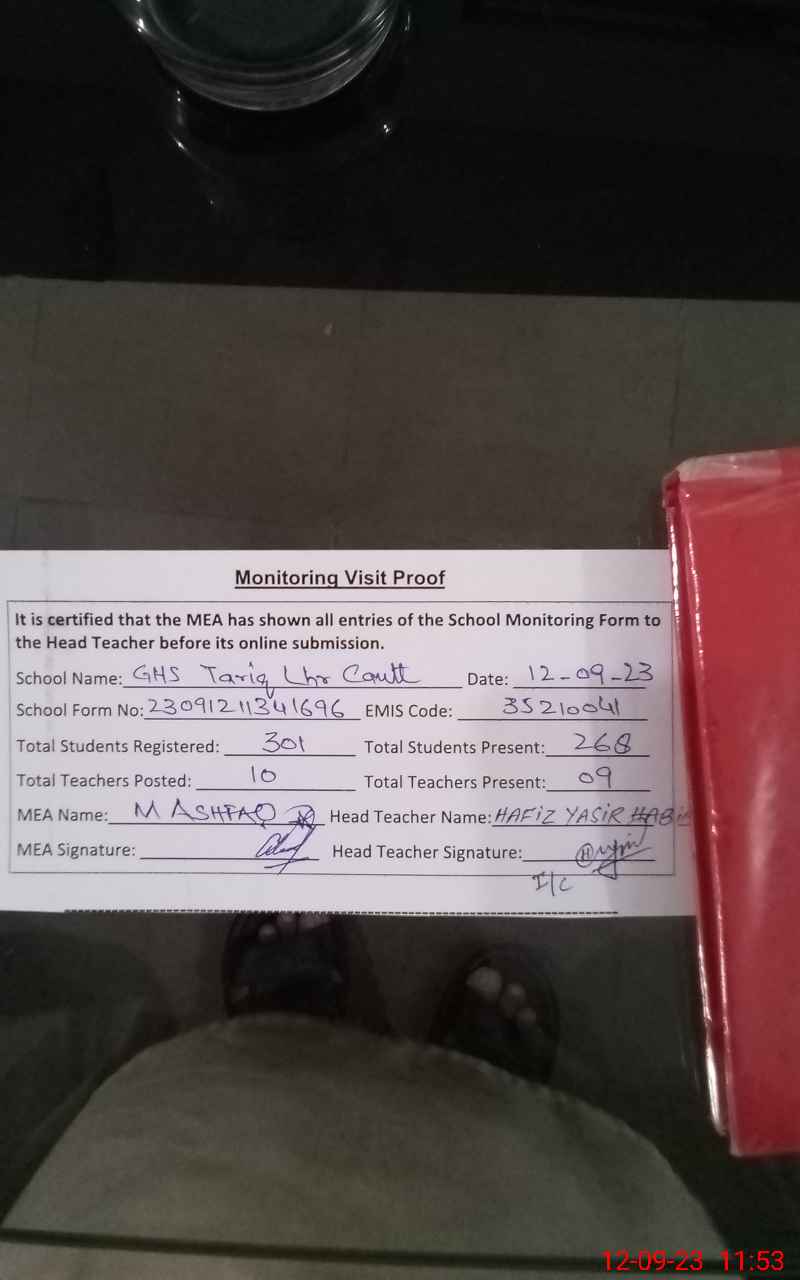 Monitoring Visit Proof
It is certified that the MEA has shown all entries of the School Monitoring Form to
the Head Teacher before its online submission.
School Name: GHS Tariq Lhr Cantt Date: 12-09-23
School Form No: 23091211341696 EMIS Code: 35210041
Total Students Registered: 301 Total Students Present: 268
Total Teachers Posted: 10 Total Teachers Present: 09
MEA Name: M ASHFAQ Head Teacher Name: HAFIZ YASIR
MEA Signature: Head Teacher Signature:
I/C
12-09-23 11:53